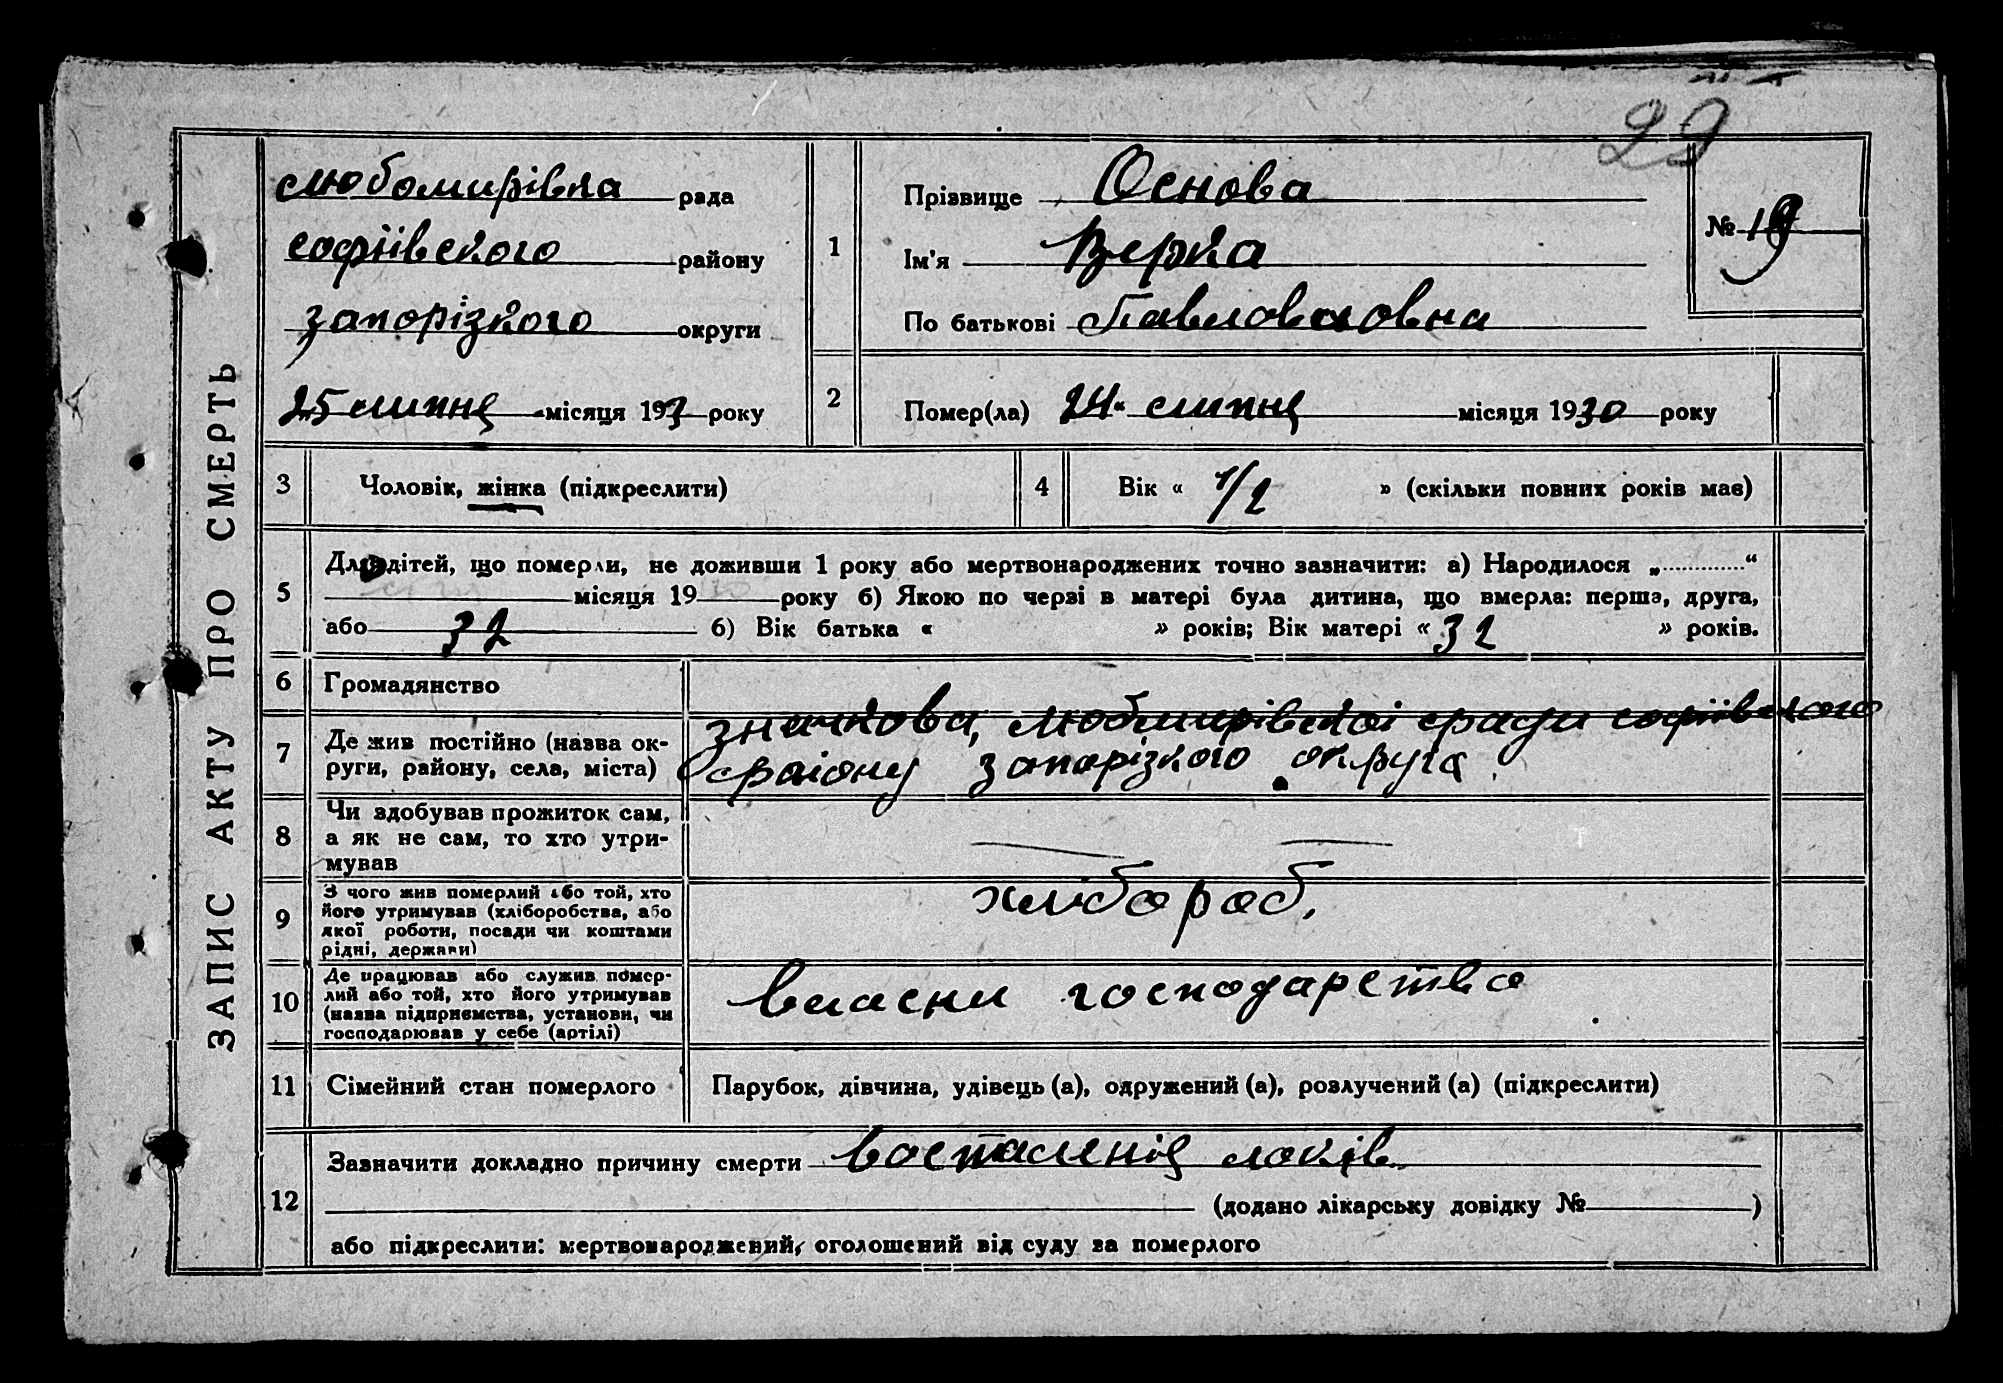 29
ЗАПИС АКТУ ПРО СМЕРТЬ
любомирівка рада
софіівского району
запорізкого округи
25 липня місяця 193 року
1
Прізвище Основа
Ім'я Верка
По батькові
№ 19
2
Помер(ла) 24 липня місяця 1930 року
3 Чоловік, жінка (підкреслити)
4 Вік « 1/2 » (скільки повних років мав)
5
Для дітей, що померли, не доживши 1 року або мертвонароджених точно зазначити: а) Народилося „ “
місяця 19 року б) Якою по черзі в матері була дитина, що вмерла: перша, друга,
або 32 б) Вік батька « » років; Вік матері « 32 » років.
6 Громадянство
7 Де жив постійно (назва ок-
руги, району, села, міста)
значкова, любмирівскоі сради софіівского
району запорізкого округа
8 Чи здобував прожиток сам,
а як не сам, то хто утри-
мував
— —
9 З чого жив померлий або той, хто
його утримував (хліборобства, або
якої роботи, посади чи коштами
рідні, держави)
хлібороб.
10 Де працював або служив помер-
лий або той, хто його утримував
(назва підприємства, установи, чи
господарював у себе (артілі)
власни господарство
11 Сімейний стан померлого Парубок, дівчина, удівець (а), одружений (а), розлучений (а) (підкреслити)
12 Зазначити докладно причину смерти воспаленія локів
(додано лікарську довідку № )
або підкреслити: мертвонароджений, оголошений від суду за померлого